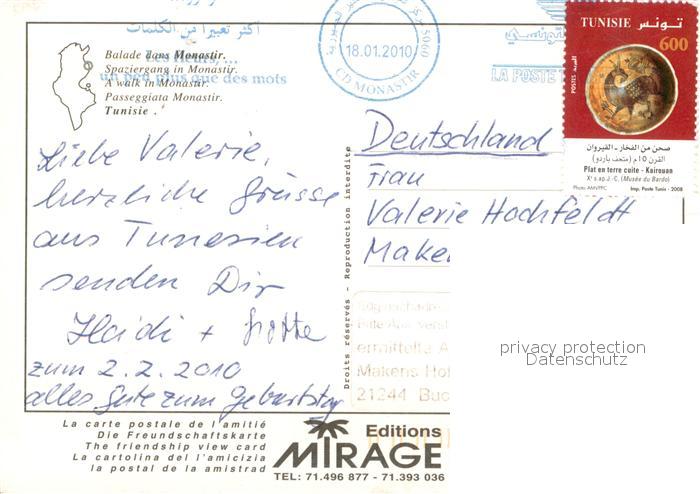 أكثر تعبيرا من الكلمات
Les fleurs,...
un peu plus que des mots
18.01.2010
CD MONASTIR
5060
LA POSTE
TUNISIE تونس
600
POSTES البريد
صحن من الفخار - القيروان
القرن 10م (متحف باردو)
Plat en terre cuite - Kairouan
Xᵉ s ap. J.-C. (Musée du Bardo)
Photo AMVPPC Imp. Poste Tunis - 2008
Balade dans Monastir.
Spaziergang in Monastir.
A walk in Monastir.
Passeggiata Monastir.
Tunisie .
Liebe Valerie,
herzliche Grüsse
aus Tunesien
senden Dir
Haidi +
zum 2.2.2010
alles Gute zum Geburtstag
Droits réservés - Reproduction interdite
Deutschland
Frau
Valerie Hochfeldt
Make
ermittelte A
Makens Ho
21244 Buc
privacy protection
Datenschutz
La carte postale de l'amitié
Die Freundschaftskarte
The friendship view card
La cartolina del l'amicizia
la postal de la amistrad
Editions
MIRAGE
TEL: 71.496 877 - 71.393 036